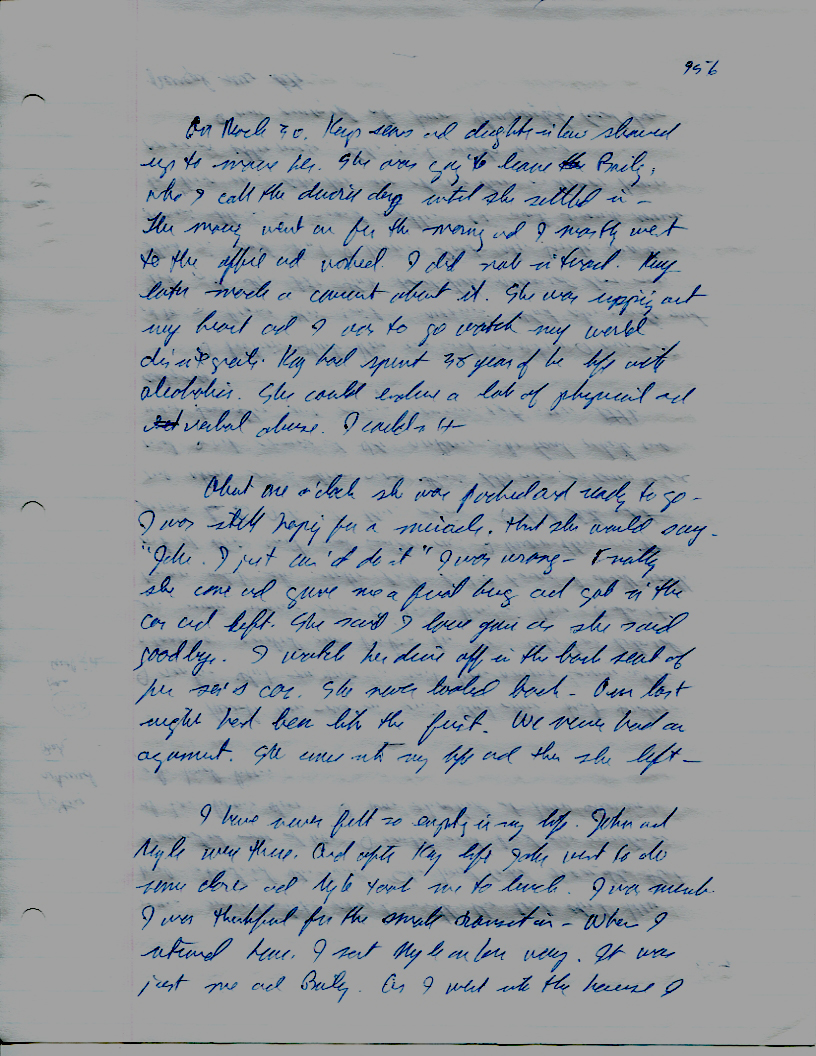 956
On March 30. Kays sons and daughter in law showed
up to move her. She was going to leave Baily,
who I call the divorce dog until she settled in -
The moving went on for the morning and I mostly went
to the office and worked. I did not interact. Kay
later made a comment about it. She was ripping out
my heart and I was to go watch my world
disintegrate. Kay had spent 38 years of her life with
alcoholics. She could endure a lot of physical and
verbal abuse. I couldn't
About one o'clock she was packed and ready to go -
I was still hoping for a miracle. that she would say -
" I just can't do it" I was wrong - Finally
she came and gave me a final hug and got in the
car and left. She said I love you as she said
goodbye. I watch her drive off in the back seat of
her son's car. She never looked back - Our last
night had been like the first. We never had an
argument. She came into my life and then she left -
I have never felt so empty in my life. John and
Myle were there. And after Kay left John went to do
some chores and Myle took me to lunch. I was numb.
I was thankful for the small transition - When I
returned home. I sent Myle on her way. It was
just me and Baily. As I went into the house I